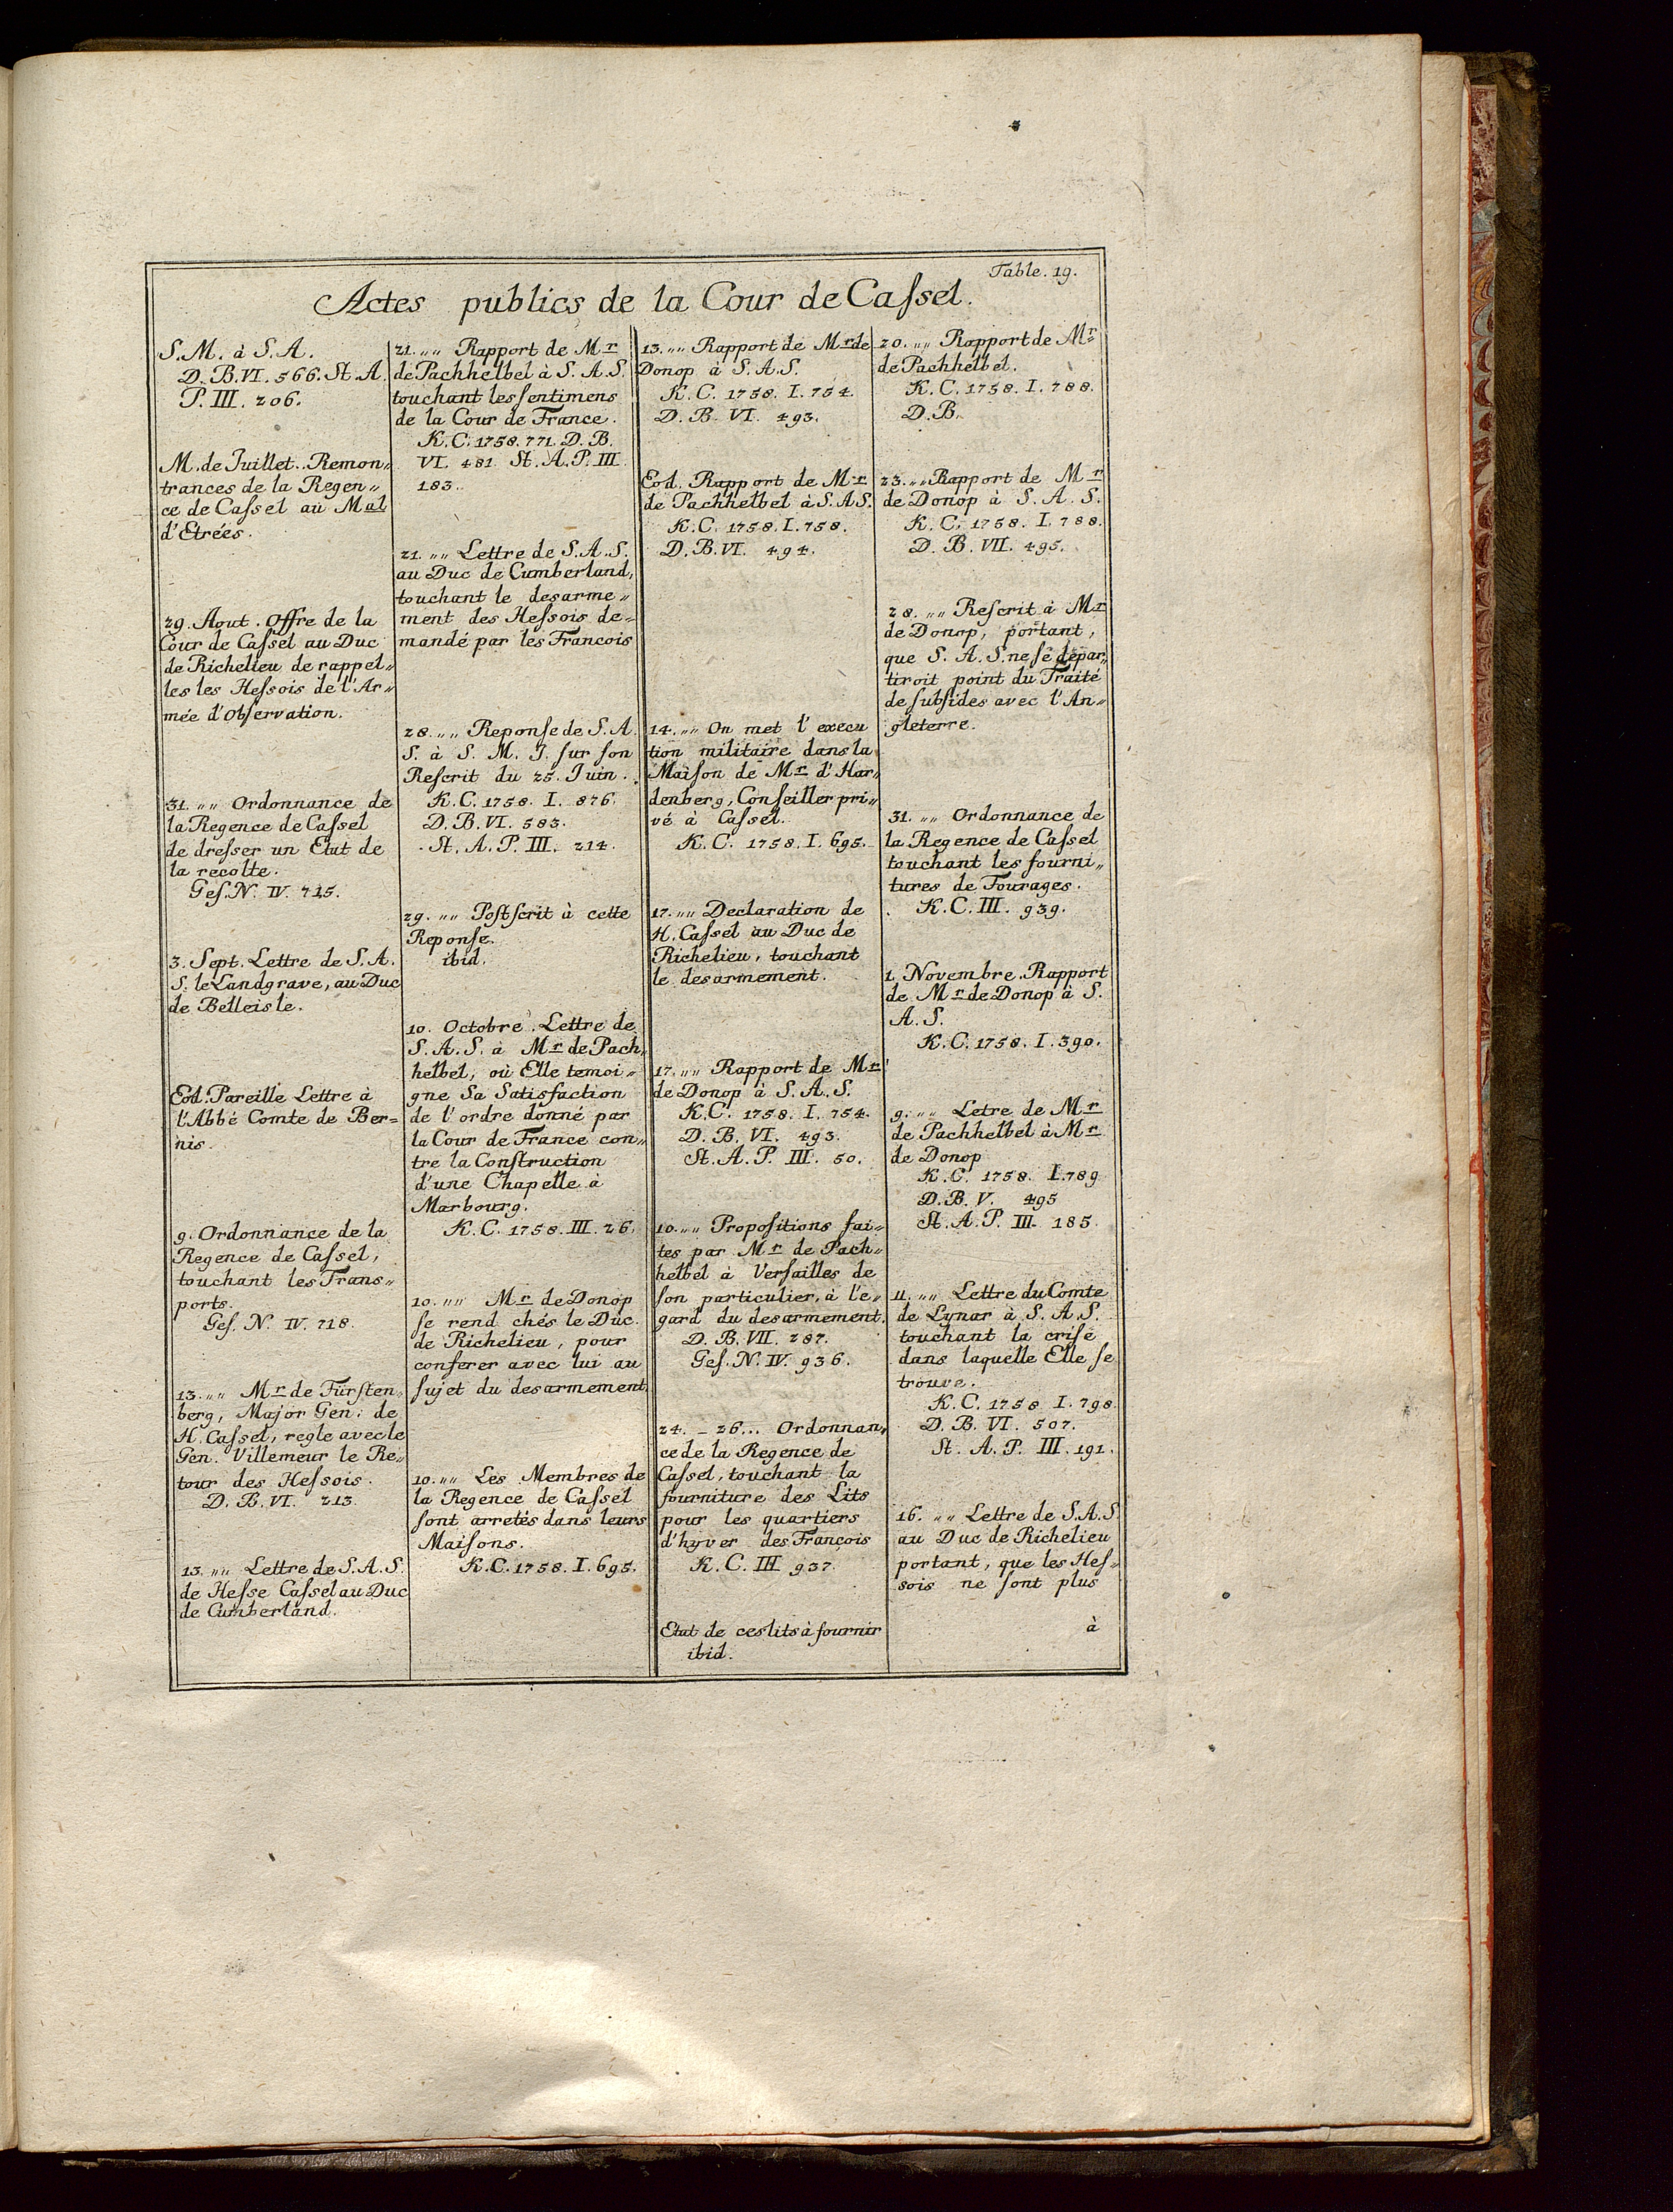 Table. 19.
Actes publics de la Cour de Caſsel.
S. M. à S. A.
D. B. VI. 566. St. A.
P. III. 206.
M. de Juillet. Remon„
trances de la Regen„
ce de Caſsel au Mal
d'Etrées.
29. Aout. Offre de la
Cour de Caſsel au Duc
de Richelieu de rappel„
les les Heſsois de l'Ar„
mée d'Obſervation.
31. „„ Ordonnance de
la Regence de Caſsel
de dreſser un Etat de
la recolte.
Geſ. N. IV. 715.
3. Sept. Lettre de S. A.
S. le Landgrave, au Duc
de Belleisle.
Eod. Pareille Lettre à
l'Abbé Comte de Ber=
nis.
9. Ordonnance de la
Regence de Caſsel,
touchant les Trans„
ports.
Geſ. N. IV. 718.
13. „„ Mr de Fürſten„
berg, Major Gen: de
H. Caſsel, regle avec le
Gen. Villemeur le Re„
tour des Heſsois.
D. B. VI. 213.
13. „„ Lettre de S. A. S.
de Heſse Caſsel au Duc
de Cumberland.
21. „„ Rapport de Mr
de Pachhelbel à S. A. S.
touchant les ſentimens
de la Cour de France.
K. C. 1758. 771. D. B.
VI. 481. St. A. P. III.
183.
21. „„ Lettre de S. A. S.
au Duc de Cumberland,
touchant le desarme„
ment des Heſsois de=
mandé par les Francois
28. „„ Reponſe de S. A.
S. à S. M. J. ſur ſon
Reſcrit du 25. Juin.
K. C. 1758. I. 876.
D. B. VI. 583.
St. A. P. III. 214.
29. „„ Poſtſcrit à cette
Reponſe.
ibid.
10. Octobre. Lettre de
S. A. S. à Mr de Pach„
helbel, où Elle temoi„
gne Sa Satisfaction
de l'ordre donné par
la Cour de France con„
tre la Conſtruction
d'une Chapelle à
Marbourg.
K. C. 1758. III. 26.
10. „„ Mr de Donop
ſe rend chés le Duc
de Richelieu, pour
conferer avec lui au
ſujet du desarmement.
10. „„ Les Membres de
la Regence de Caſsel
ſont arretés dans leurs
Maiſons.
K. C. 1758. I. 695.
13. „„ Rapport de Mr de
Donop à S. A. S.
K. C. 1758. I. 754.
D. B. VI. 493.
Eod. Rapport de Mr
de Pachhelbel à S. A S.
K. C. 1758. I. 758.
D. B. VI. 494.
14. „„ On met l'execu
tion militaire dans la
Maiſon de Mr d'Har„
denberg, Conſeiller pri„
vé à Caſsel.
K. C. 1758. I. 695.
17. „„ Declaration de
H. Caſsel au Duc de
Richelieu, touchant
le desarmement.
17. „„ Rapport de Mr
de Donop à S. A. S.
K. C. 1758. I. 754.
D. B. VI. 493.
St. A. P. III. 50.
10. „„ Propoſitions fai„
tes par Mr de Pach„
helbel à Verſailles de
ſon particulier, à l'e„
gard du desarmement.
D. B. VII. 287.
Geſ. N. IV. 936.
24. _ 26... Ordonnan„
ce de la Regence de
Caſsel, touchant la
fourniture des Lits
pour les quartiers
d'hyver des François
K. C. III 937.
Etat de ces lits à fournir
ibid.
20. „„ Rapport de Mr
de Pachhelbel.
K. C. 1758. I. 788.
D. B.
23. „„ Rapport de Mr
de Donop à S. A. S.
K. C. 1758. I. 788.
D. B. VII. 495.
28. „„ Reſcrit à Mr
de Donop, portant,
que S. A. S. ne ſe depar„
tiroit point du Traité
de ſubſides avec l'An„
gleterre.
31. „„ Ordonnance de
la Regence de Caſsel
touchant les fourni„
tures de Fourages.
K. C. III. 939.
1. Novembre. Rapport
de Mr de Donop à S.
A. S.
K. C. 1758. I. 390.
9. „„ Letre de Mr
de Pachhelbel à Mr
de Donop
K. C. 1758. I. 789
D. B. V. 495
St. A. P. III. 185.
11. „„ Lettre du Comte
de Lynar à S. A. S.
touchant la criſe
dans laquelle Elle ſe
trouve.
K. C. 1758 I. 798.
D. B. VI. 507.
St. A. P. III. 191.
16. „„ Lettre de S. A. S
au Duc de Richelieu
portant, que les Heſ„
sois ne ſont plus
à